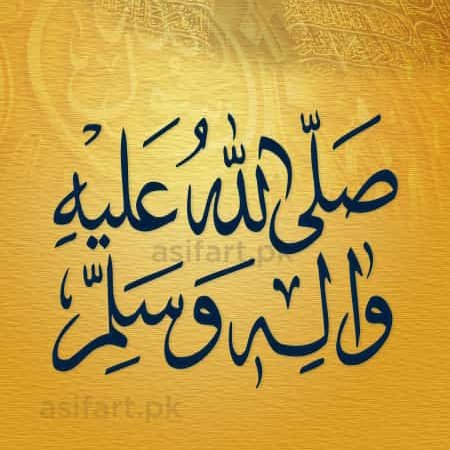 صَلَّى اللهُ عَلَيْهِ
وَاٰلِهٖ وَسَلِّمْ
asifart.pk
asifart.pk